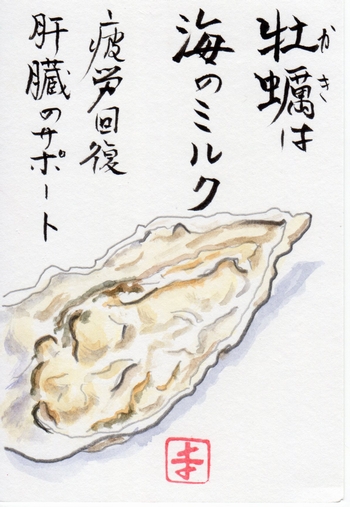 牡蠣は
かき
海のミルク
疲労回復
肝臓のサポート